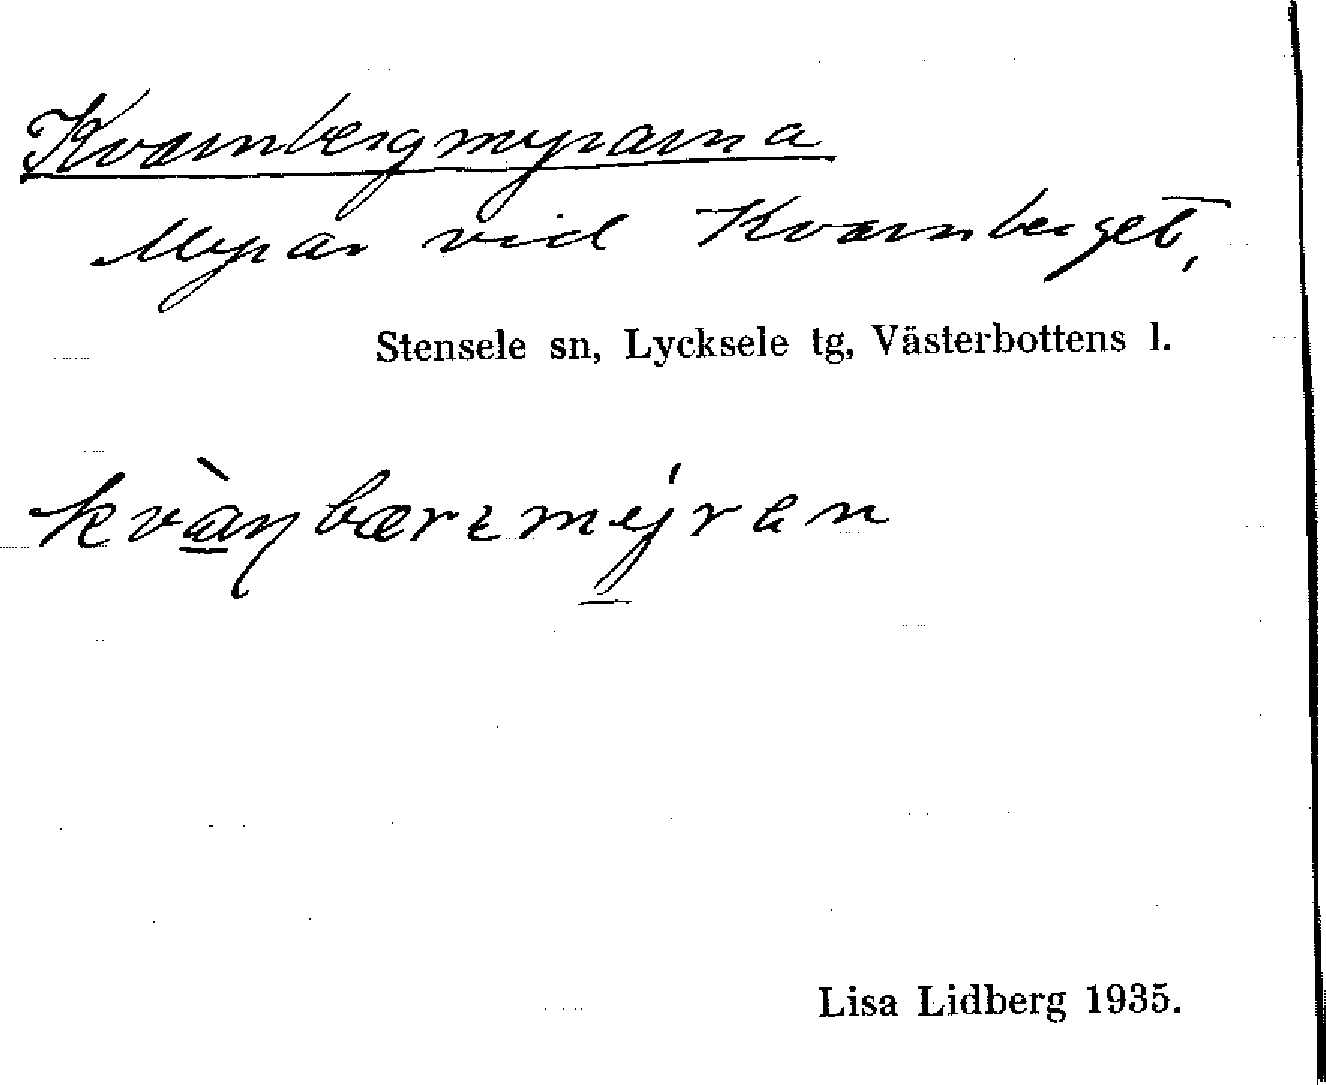 Kvarnbergmyrarna
Myrar vid Kvarnberget,
Stensele sn, Lycksele tg, Västerbottens l.
kvàṇbærɩmýran
Lisa Lidberg 1935.